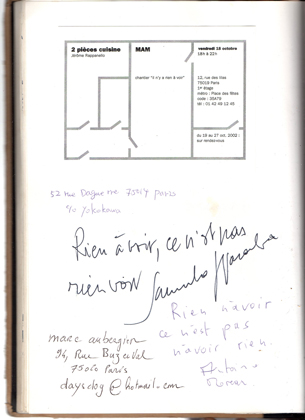 2 pièces cuisine
Jérôme
MAM
vendredi 18 octobre
18H à 22H
chantier "il n'y a rien à voir"
12, rue des lilas
75019 Paris
1er étage
métro : Place des fêtes
code : 35A79
tél : 01 42 49 12 45
du 19 au 27 oct. 2002 :
sur rendez-vous
52 rue Daguerre 75014 paris
c/o yokokawa
Rien à voir, ce n'est pas
rien voir
Rien n'avoir
ce n'est pas
n'avoir rien.
marc
94, Rue Buzenval
75020 Paris
daysdog@hotmail.com